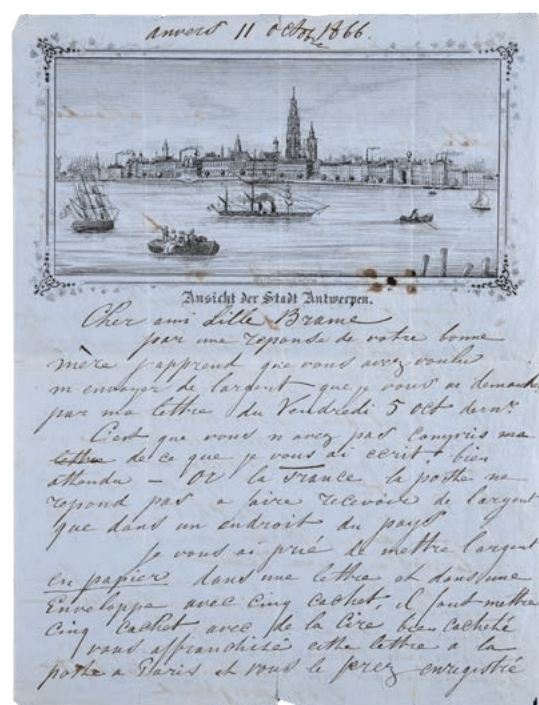 anvers 11 octobre 1866.
Ansicht der Stadt Antwerpen.
Cher ami Lille Brame
par une reponse de votre bonne
mère j'apprend que vous avez voulu
m envoyer de largent que je vous ai demandé
par ma lettre du Vendredi 5 oct dernr
C'est que vous n avez pas compris ma
lettre de ce que je vous ai ecrit. bien
attendu — Or la France la poste ne
repond pas a faire recevoire de largent
que dans un endroit du pays
Je vous ai prié de mettre l'argent
en papier dans une lettre et dans une
Enveloppe avec cinq cachet, il faut mettre
cinq cachet avec de la Cire bien cacheté
vous affranchisé cette lettre a la
poste a Paris et vous le ferez enregistré